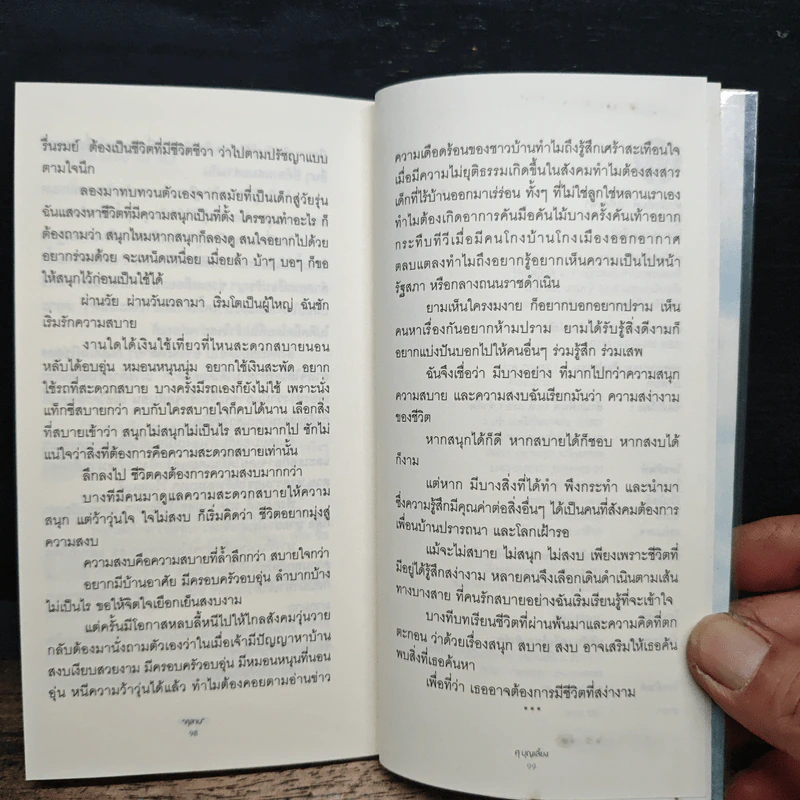 รื่นรมย์ ต้องเป็นชีวิตที่มีชีวิตชีวา ว่าไปตามปรัชญาแบบ
ตามใจนึก
ลองมาทบทวนตัวเองจากสมัยที่เป็นเด็กสู่วัยรุ่น
ฉันแสวงหาชีวิตที่มีความสนุกเป็นที่ตั้ง ใครชวนทำอะไร ก็
ต้องถามว่า สนุกไหมหากสนุกก็ลองดู สนใจอยากไปด้วย
อยากร่วมด้วย จะเหน็ดเหนื่อย เมื่อยล้า บ้าๆ บอๆ ก็ขอ
ให้สนุกไว้ก่อนเป็นใช้ได้
ผ่านวัย ผ่านวันเวลามา เริ่มโตเป็นผู้ใหญ่ ฉันชัก
เริ่มรักความสบาย
งานใดได้เงินใช้เที่ยวที่ไหนสะดวกสบายนอน
หลับได้อบอุ่น หมอนหนุนนุ่ม อยากใช้เงินสะพัด อยาก
ใช้รถที่สะดวกสบาย บางครั้งมีรถเองก็ยังไม่ใช้ เพราะนั่ง
แท็กซี่สบายกว่า คบกับใครสบายใจก็คบได้นาน เลือกสิ่ง
ที่สบายเข้าว่า สนุกไม่สนุกไม่เป็นไร สบายมากไป ชักไม่
แน่ใจว่าสิ่งที่ต้องการคือความสะดวกสบายเท่านั้น
ลึกลงไป ชีวิตคงต้องการความสงบมากกว่า
บางทีมีคนมาดูแลความสะดวกสบายให้ความ
สนุก แต่ว้าวุ่นใจ ใจไม่สงบ ก็เริ่มคิดว่า ชีวิตอยากมุ่งสู่
ความสงบ
ความสงบคือความสบายที่ล้ำลึกกว่า สบายใจกว่า
อยากมีบ้านอาศัย มีครอบครัวอบอุ่น ลำบากบ้าง
ไม่เป็นไร ขอให้จิตใจเยือกเย็นสงบงาม
แต่ครั้นมีโอกาสหลบลี้หนีไปให้ไกลสังคมวุ่นวาย
กลับต้องมานั่งถามตัวเองว่าในเมื่อเจ้ามีปัญญาหาบ้าน
สงบเงียบสวยงาม มีครอบครัวอบอุ่น มีหมอนหนุนที่นอน
อุ่น หนีความว้าวุ่นได้แล้ว ทำไมต้องคอยตามอ่านข่าว
98
ความเดือดร้อนของชาวบ้านทำไมถึงรู้สึกเศร้าสะเทือนใจ
เมื่อมีความไม่ยุติธรรมเกิดขึ้นในสังคมทำไมต้องสงสาร
เด็กที่ไร้บ้านออกมาเร่ร่อน ทั้งๆ ที่ไม่ใช่ลูกใช่หลานเราเอง
ทำไมต้องเกิดอาการคันมือคันไม้บางครั้งคันเท้าอยาก
กระทืบทีวีเมื่อมีคนโกงบ้านโกงเมืองออกอากาศ
ตลบแตลงทำไมถึงอยากรู้อยากเห็นความเป็นไปหน้า
รัฐสภา หรือกลางถนนราชดำเนิน
ยามเห็นใครงมงาย ก็อยากบอกอยากปราม เห็น
คนหาเรื่องกันอยากห้ามปราม ยามได้รับรู้สิ่งดีงามก็
อยากแบ่งปันบอกไปให้คนอื่นๆ ร่วมรู้สึก ร่วมเสพ
ฉันจึงเชื่อว่า มีบางอย่าง ที่มากไปกว่าความสนุก
ความสบาย และความสงบฉันเรียกมันว่า ความสง่างาม
ของชีวิต
หากสนุกได้ก็ดี หากสบายได้ก็ชอบ หากสงบได้
ก็งาม
แต่หาก มีบางสิ่งที่ได้ทำ พึงกระทำ และนำมา
ซึ่งความรู้สึกมีคุณค่าต่อสิ่งอื่นๆ ได้เป็นคนที่สังคมต้องการ
เพื่อนบ้านปรารถนา และโลกเฝ้ารอ
แม้จะไม่สบาย ไม่สนุก ไม่สงบ เพียงเพราะชีวิตที่
มีอยู่ได้รู้สึกสง่างาม หลายคนจึงเลือกเดินดำเนินตามเส้น
ทางบางสาย ที่คนรักสบายอย่างฉันเริ่มเรียนรู้ที่จะเข้าใจ
บางทีบทเรียนชีวิตที่ผ่านพ้นมาและความคิดที่ตก
ตะกอน ว่าด้วยเรื่องสนุก สบาย สงบ อาจเสริมให้เธอค้น
พบสิ่งที่เธอค้นหา
เพื่อที่ว่า เธออาจต้องการมีชีวิตที่สง่างาม
***
ศุ บุญเลี้ยง
99